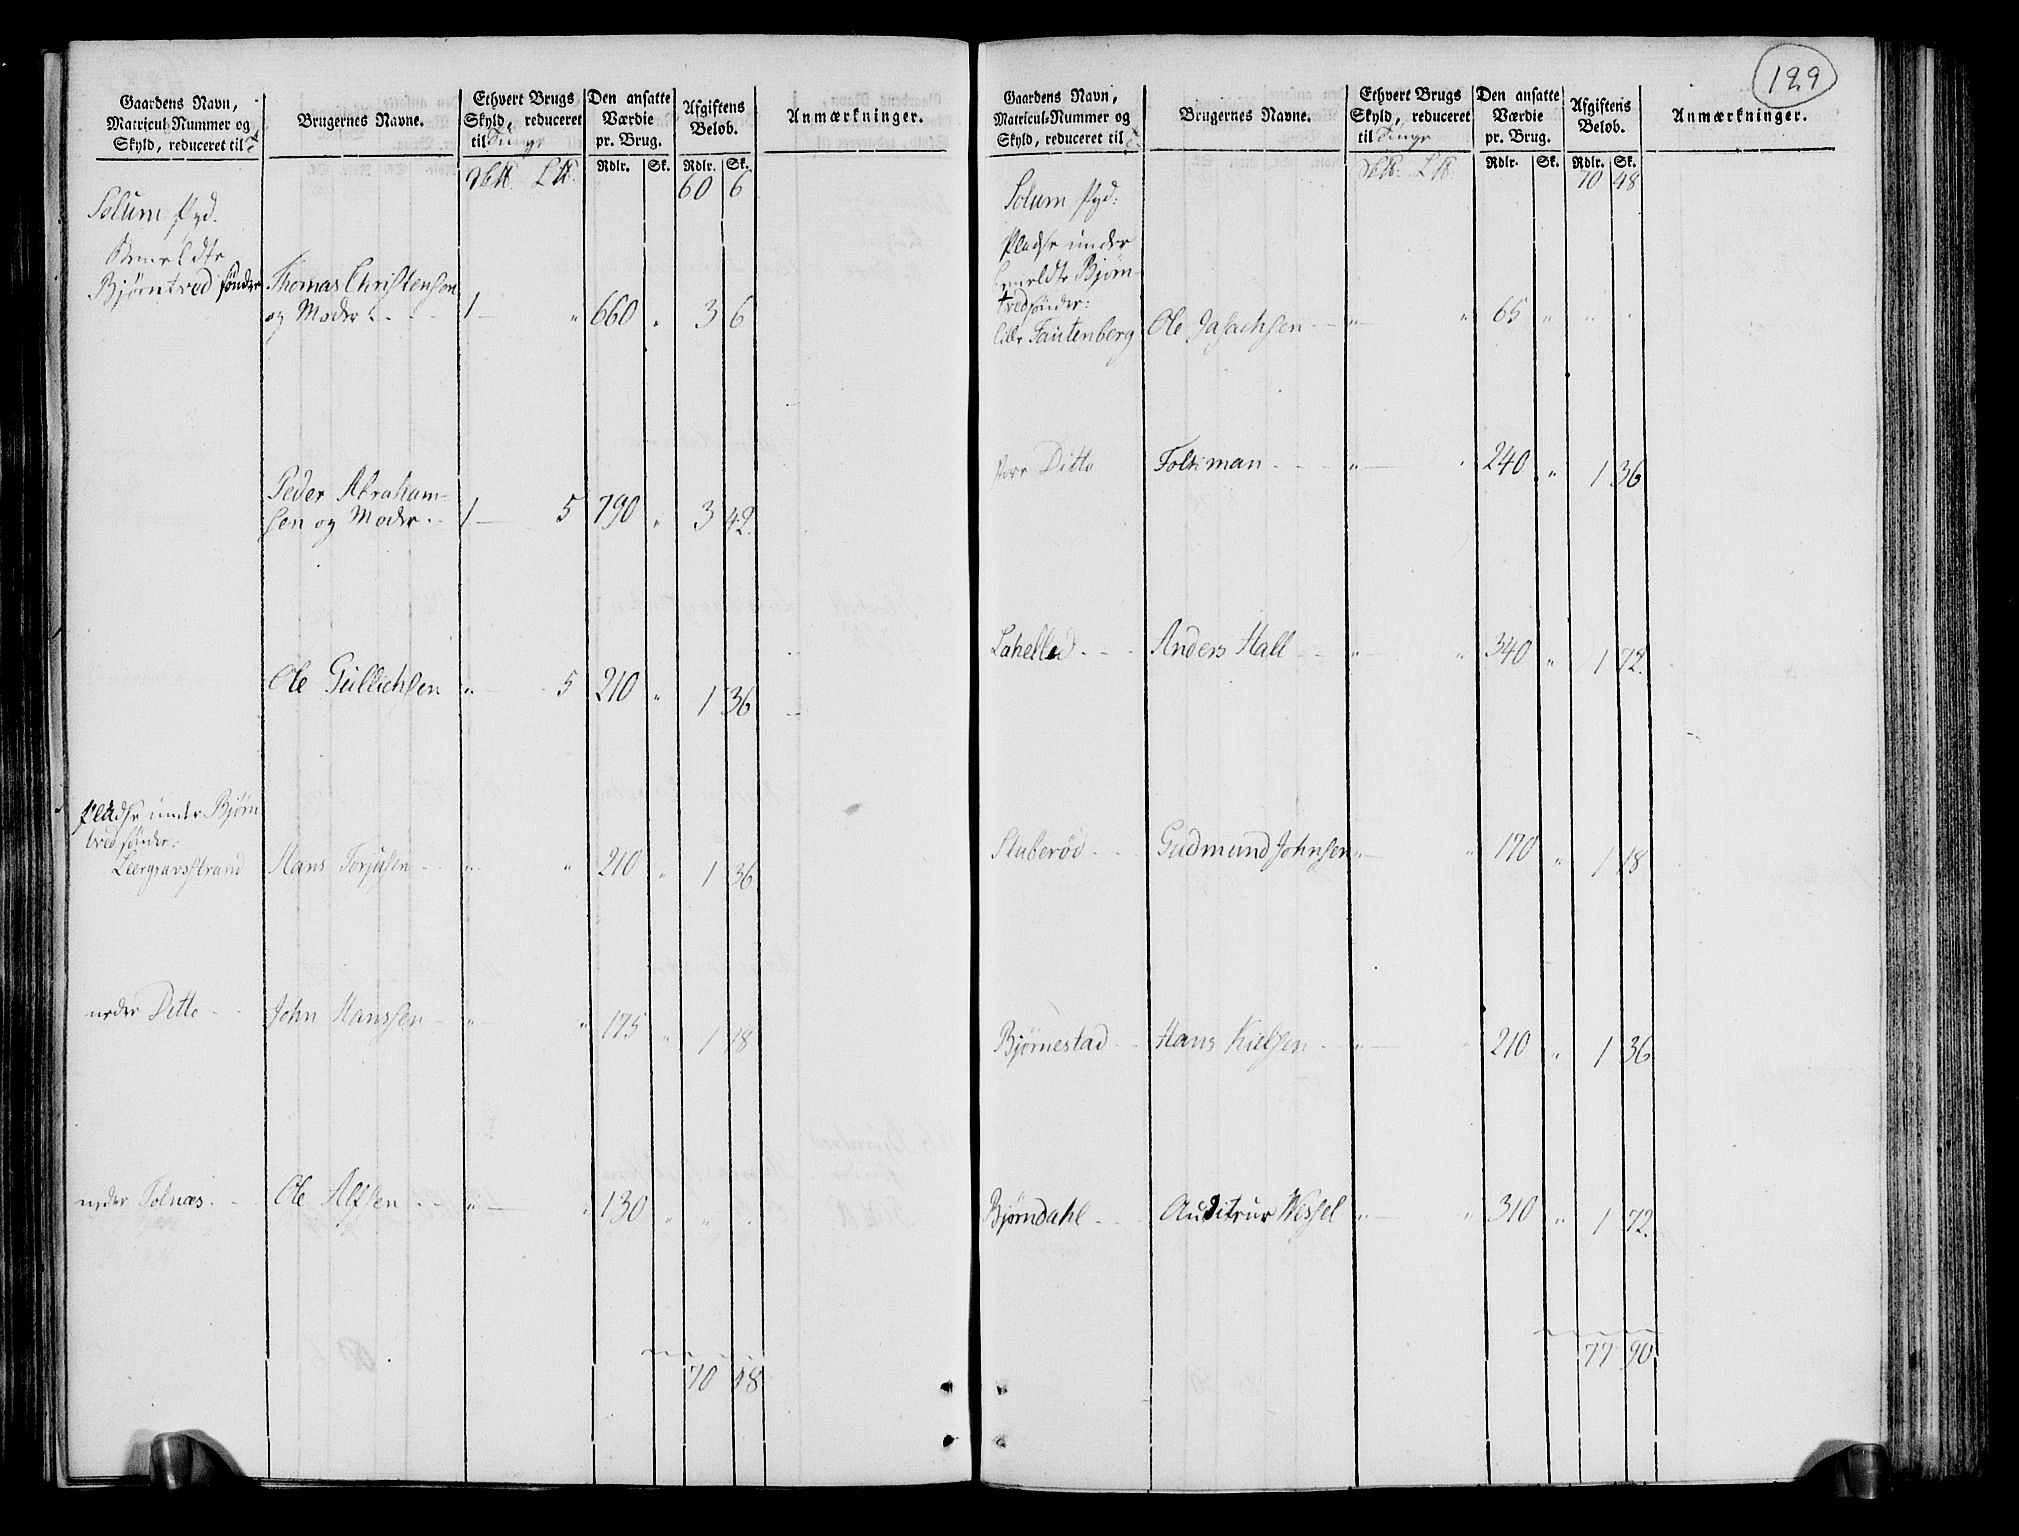 Gaardens Navn,
Matricul-Nummer og
Skyld, reduceret til
Brugernes Navne.
Ethvert Brugs
Skyld, reduceret
til Tunge
Den ansatte
Værdie
pr. Brug.
Afgiftens
Beløb.
Anmærkninger.
Rdlr. Sk. Rdlr. Sk.
60 6
Solum Pgd.
bemeldte
Bjørntved sønder Thomas Christensen
og Moder 1 " 660 " 3 6
Peder Abraham-
sen og Moder 1 5 790 " 3 42
Ole Gullichsen " 5 210 " 1 36
Pladse under Bjørn
tved sønder:
Leergravsstrand Hans Torjusen " " 210 " 1 36
neder Ditto John Hanssen " " 175 " 1 18
neder Tolnæs Ole Alfsen " " 130 " " "
70 48
129
Gaardens Navn,
Matricul-Nummer og
Skyld, reduceret til
Brugernes Navne.
Ethvert Brugs
Skyld, reduceret
til Tunge
Den ansatte
Værdie
pr. Brug.
Afgiftens
Beløb.
Anmærkninger.
Rdlr. Sk. Rdlr. Sk.
70 48
Solum Pgd:
Pladse under
bemeldte Bjørn-
tved sønder:
lille Tautenberg Ole Isachsen " " 65 " " "
store Ditto Foltiman " " 240 " 1 36
Lahelled Anders Hall " " 340 " 1 72
Stuberød Gudmund Johnsen " " 170 " 1 18
Bjørnestad Hans Kielsen " " 210 " 1 36
Bjørndahl Auditeur Wessel " " 310 " 1 72
77 90